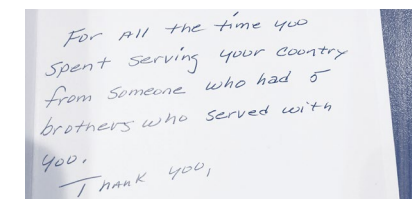 For All the time you
spent serving your country
from someone who had 5
brothers who served with
you.
Thank you,